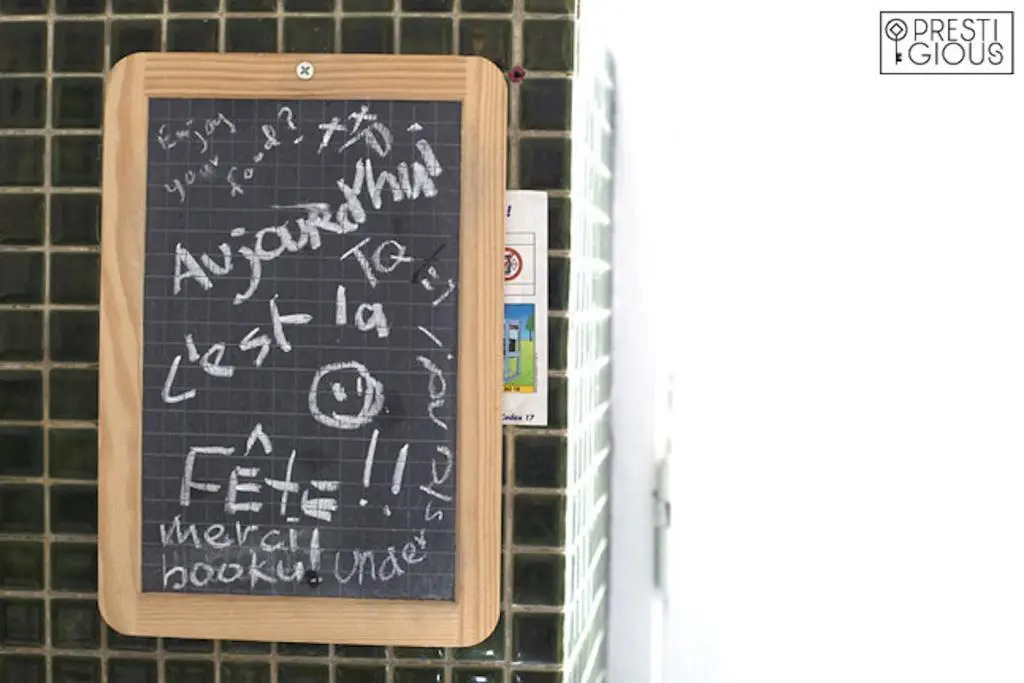 PRESTI
GIOUS
Enjoy
your food?
Aujourd'hui
TQ
c'est la
FÊtE !!
merci!
booku!
!
Codex 17